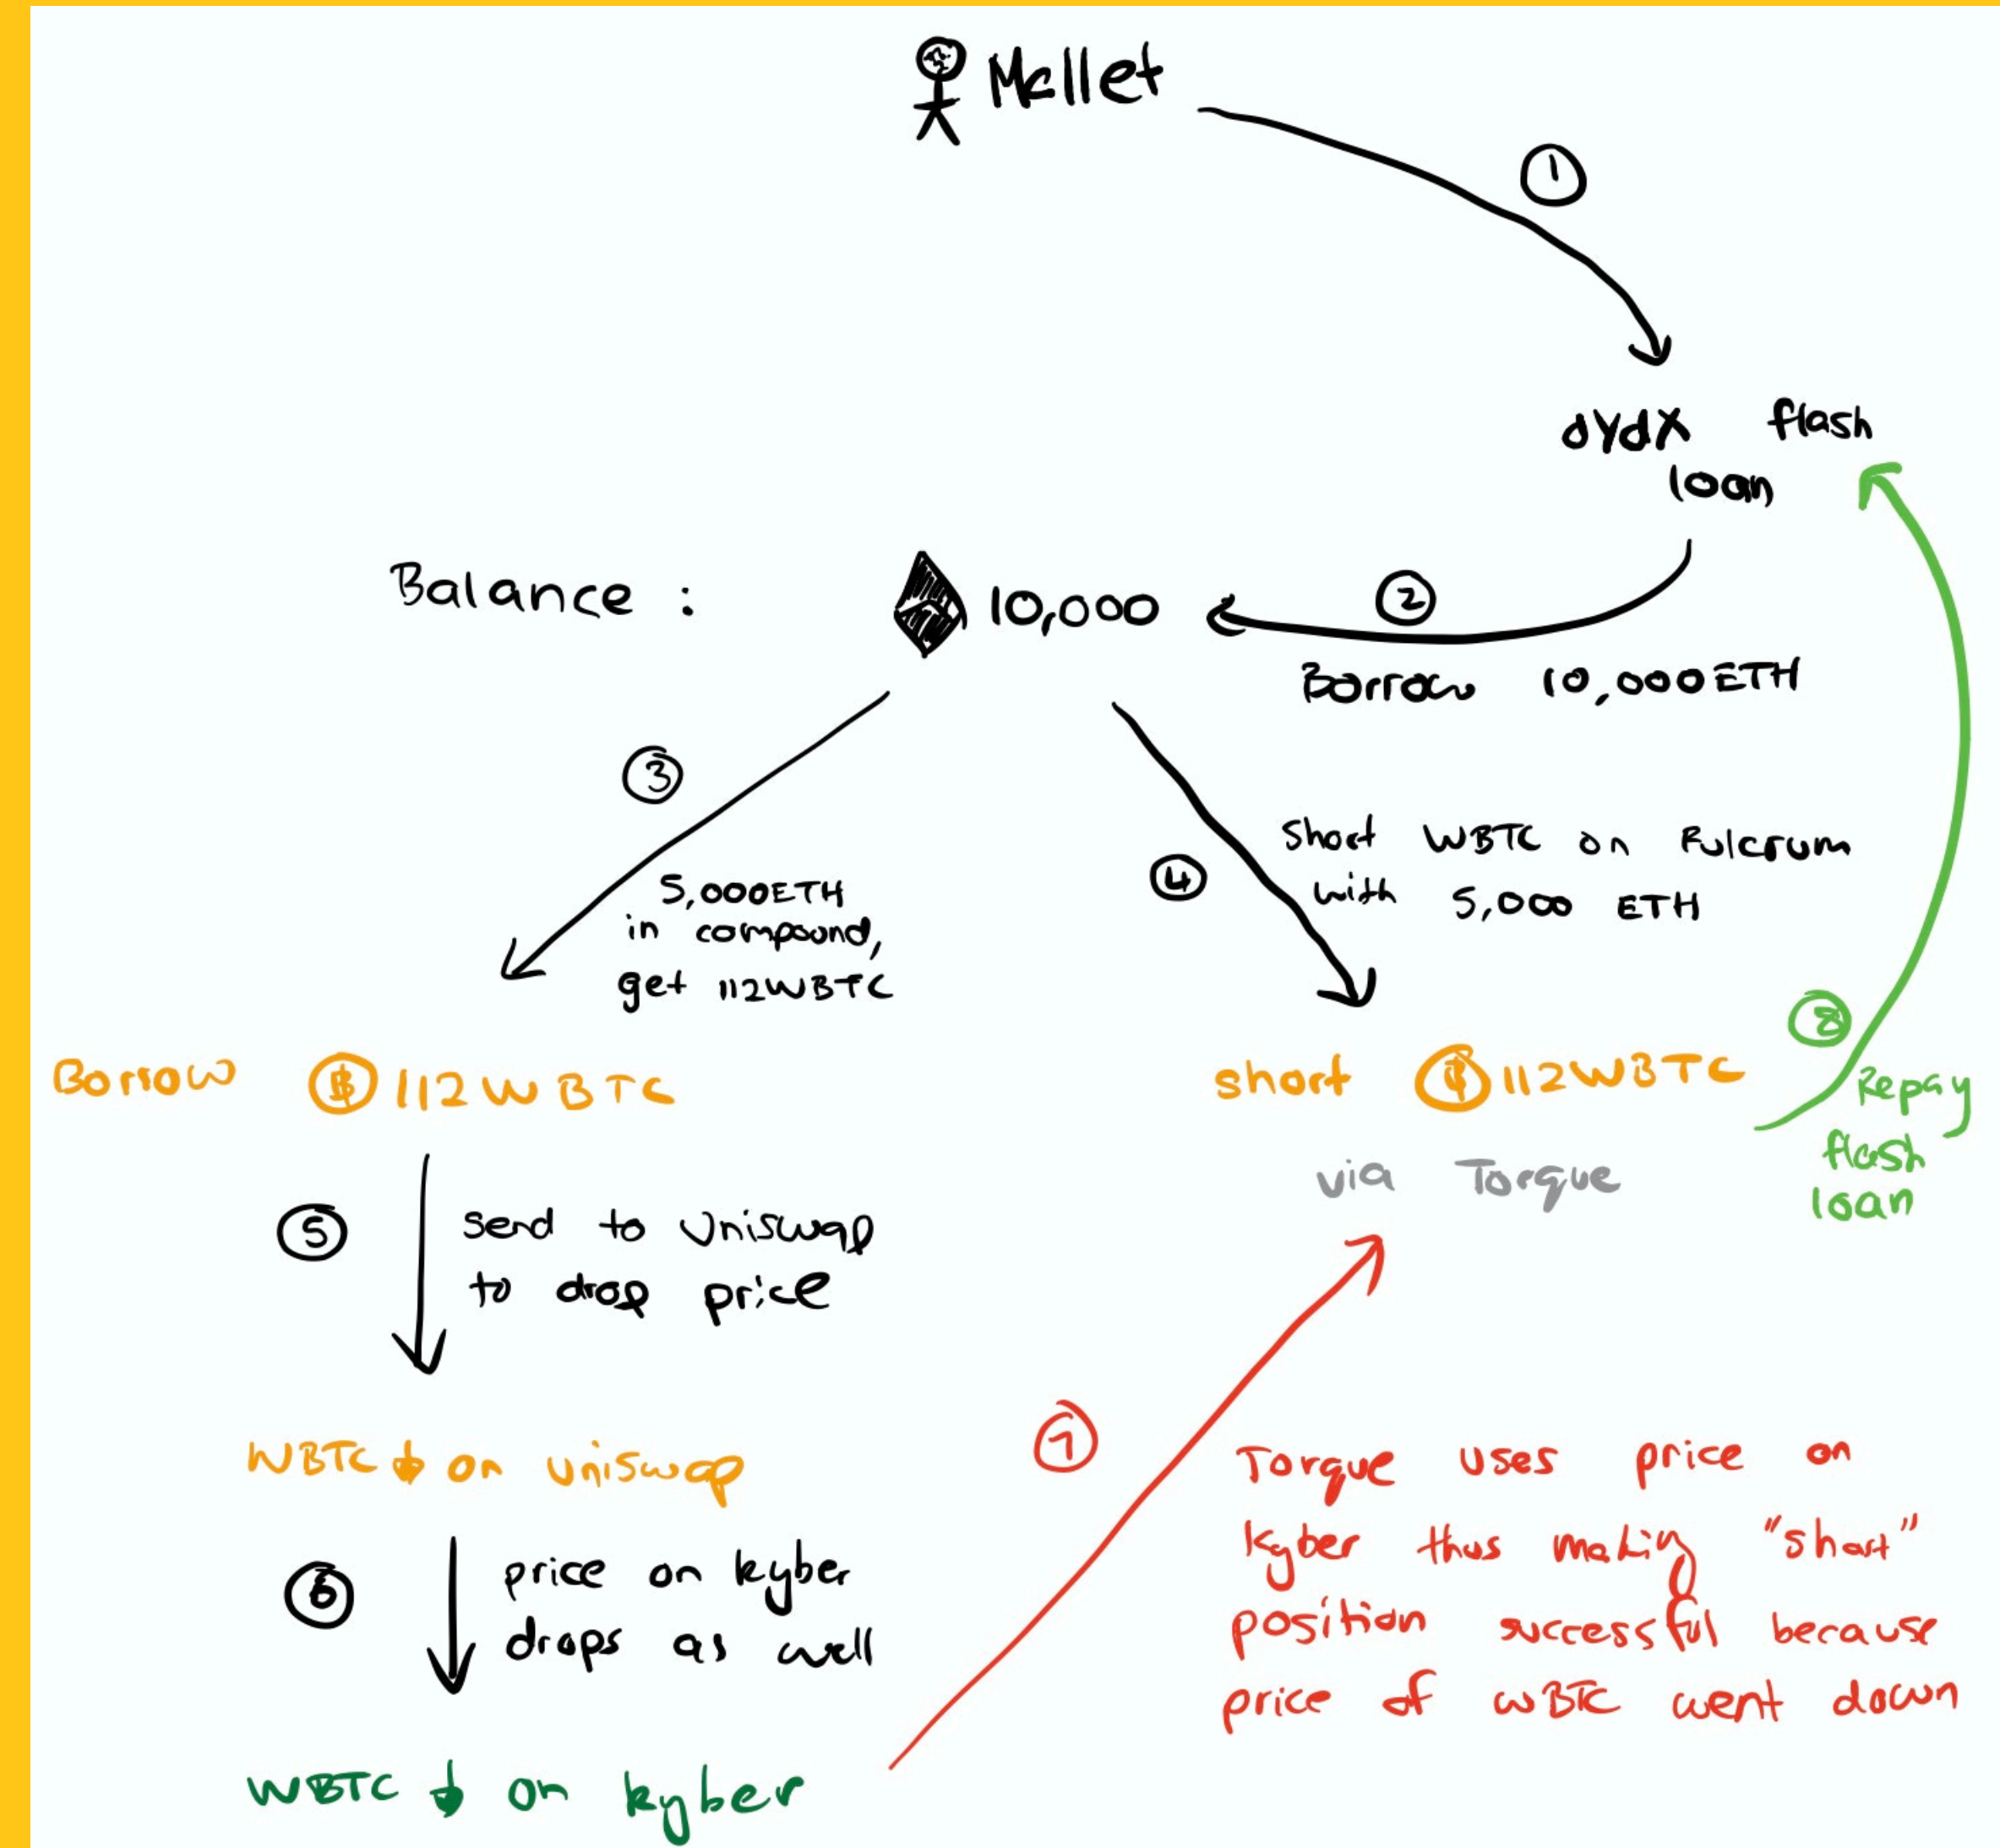 Mallet
①
dYdX flash
loan
Balance : 10,000
②
Borrow 10,000 ETH
③
5,000 ETH
in compound,
get 112 WBTC
④
Short WBTC on Fulcrum
with 5,000 ETH
Borrow ₿ 112 WBTC
short ₿ 112 WBTC
via Torque
⑧
Repay
flash
loan
⑤
send to Uniswap
to drop price
WBTC ↓ on Uniswap
⑥
price on kyber
drops as well
WBTC ↓ on kyber
⑦
Torque uses price on
kyber thus making "short"
position successful because
price of WBTC went down